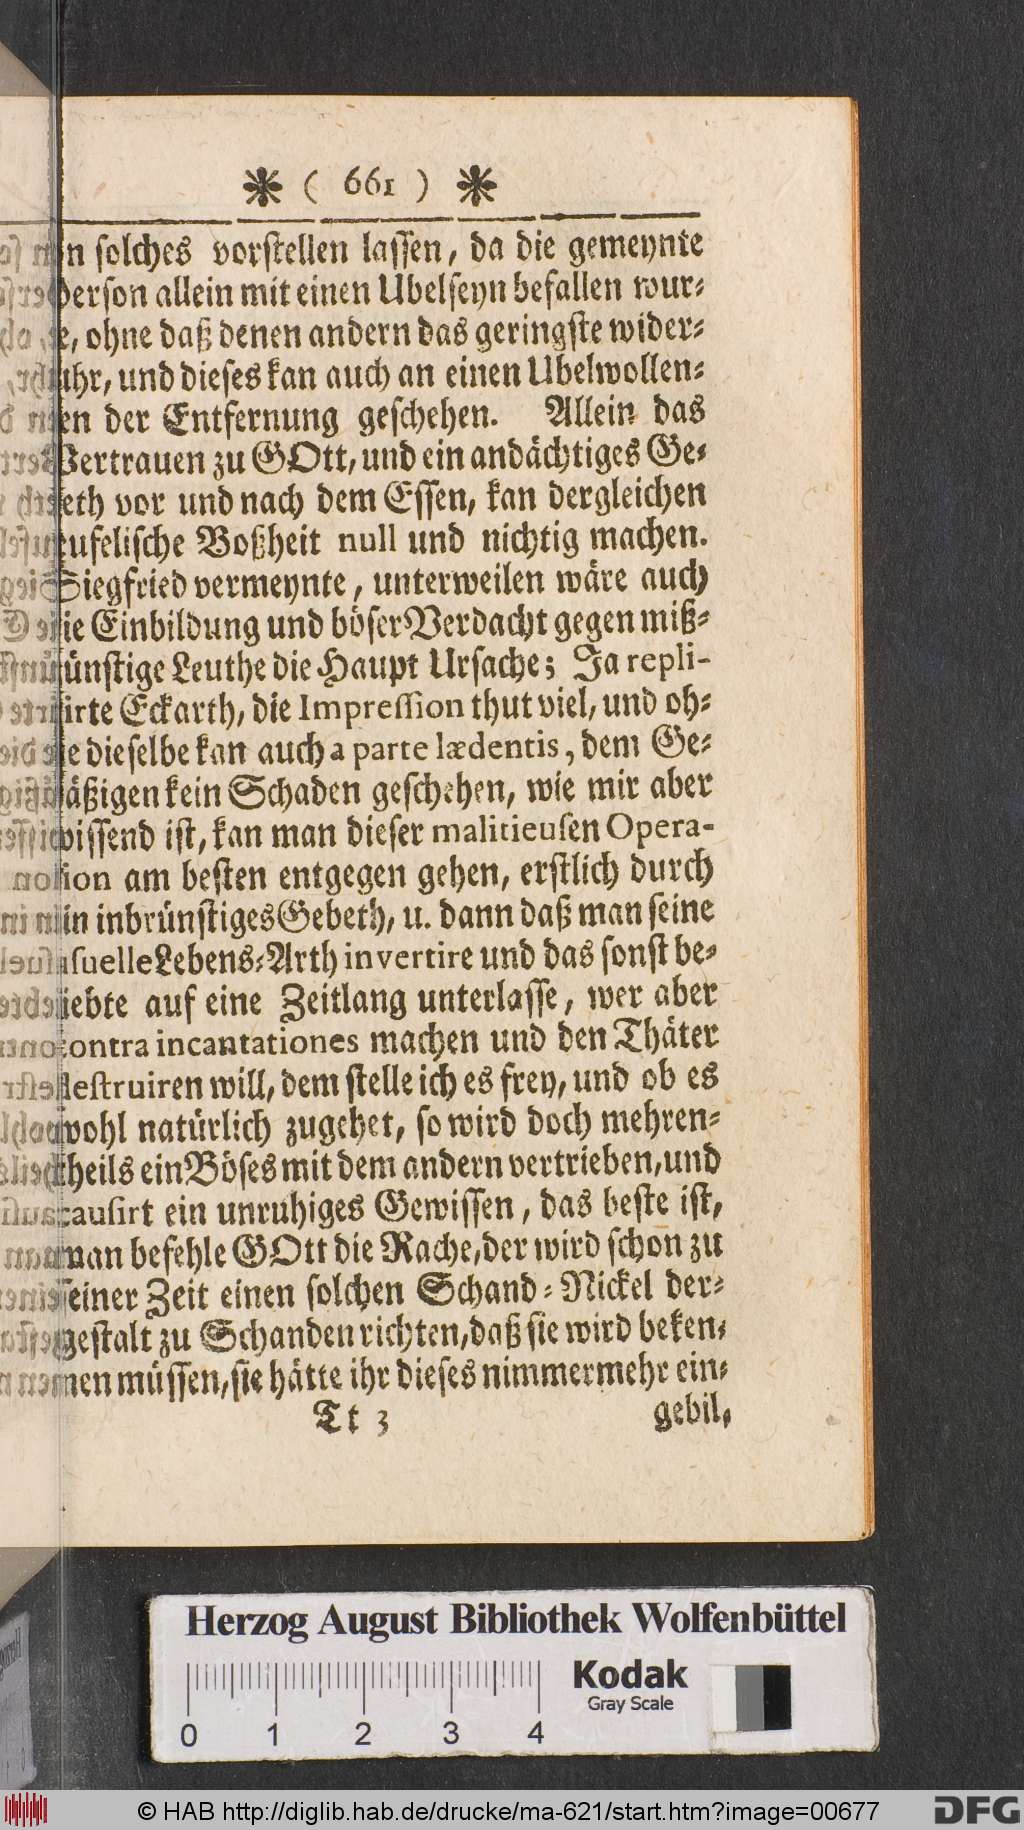 ( 661 )
n solches vorstellen lassen, da die gemeynte
Person allein mit einen Ubelseyn befallen wur-
e, ohne daß denen andern das geringste wider-
uhr, und dieses kan auch an einen Ubelwollen-
en der Entfernung geschehen. Allein das
Vertrauen zu GOtt, und ein andächtiges Ge-
beth vor und nach dem Essen, kan dergleichen
eufelische Boßheit null und nichtig machen.
Siegfried vermeynte, unterweilen wäre auch
ie Einbildung und böser Verdacht gegen miß-
ünstige Leuthe die Haupt Ursache; Ja repli-
irte Eckarth, die Impression thut viel, und oh-
e dieselbe kan auch a parte lædentis, dem Ge-
äßigen kein Schaden geschehen, wie mir aber
wissend ist, kan man dieser malitieusen Opera-
tion am besten entgegen gehen, erstlich durch
in inbrünstiges Gebeth, u. dann daß man seine
suelle Lebens-Arth invertire und das sonst be-
liebte auf eine Zeitlang unterlasse, wer aber
contra incantationes machen und den Thäter
destruiren will, dem stelle ich es frey, und ob es
wohl natürlich zugehet, so wird doch mehren-
theils ein Böses mit dem andern vertrieben, und
causirt ein unruhiges Gewissen, das beste ist,
man befehle GOtt die Rache, der wird schon zu
seiner Zeit einen solchen Schand-Nickel der-
gestalt zu Schanden richten, daß sie wird beken-
nen müssen, sie hätte ihr dieses nimmermehr ein-
Tt 3 gebil,
Herzog August Bibliothek Wolfenbüttel
Kodak
Gray Scale
0 1 2 3 4
© HAB http://diglib.hab.de/drucke/ma-621/start.htm?image=00677
DFG